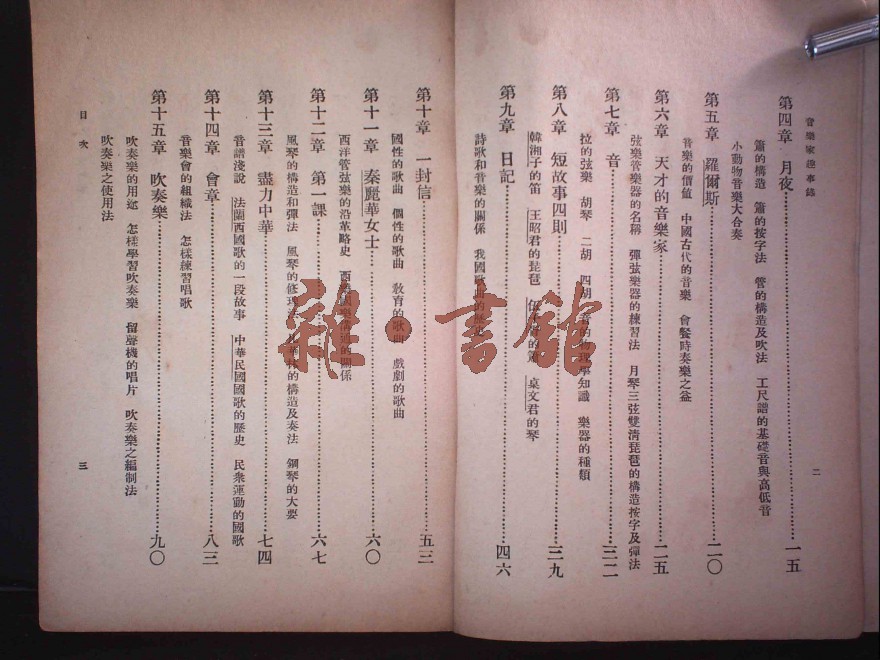 音樂家趣事錄
第四章 月夜……一五
簫的構造 簫的按字法 管的構造及吹法 工尺譜的基礎音與高低音
小動物音樂大合奏
第五章 羅爾斯……二〇
音樂的價值 中國古代的音樂 會餐時奏樂之益
第六章 天才的音樂家……二五
弦樂管樂器的名稱 彈弦樂器的練習法 月琴三弦雙清琵琶的構造按字及彈法
第七章 音……三二
拉的弦樂 胡琴 二胡 四胡 音的物理學知識 樂器的種類
第八章 短故事四則……三九
韓湘子的笛 王昭君的琵琶 伍子胥的簫 桌文君的琴
第九章 日記……四六
詩歌和音樂的關係 我國歌曲的歷史
二
第十章 一封信……五三
國性的歌曲 個性的歌曲 教育的歌曲 戲劇的歌曲
第十一章 秦麗華女士……六〇
西洋管弦樂的沿革略史 西 樂 的關係
第十二章 第一課……六七
風琴的構造和彈法 風琴的修理法 的構造及奏法 鋼琴的大要
第十三章 盡力中華……七四
音譜淺說 法蘭西國歌的一段故事 中華民國國歌的歷史 民衆運動的國歌
第十四章 會章……八三
音樂會的組織法 怎樣練習唱歌
第十五章 吹奏樂……九〇
吹奏樂的用途 怎樣學習吹奏樂 留聲機的唱片 吹奏樂之編制法
吹奏樂之使用法
目次
三
雜·書館